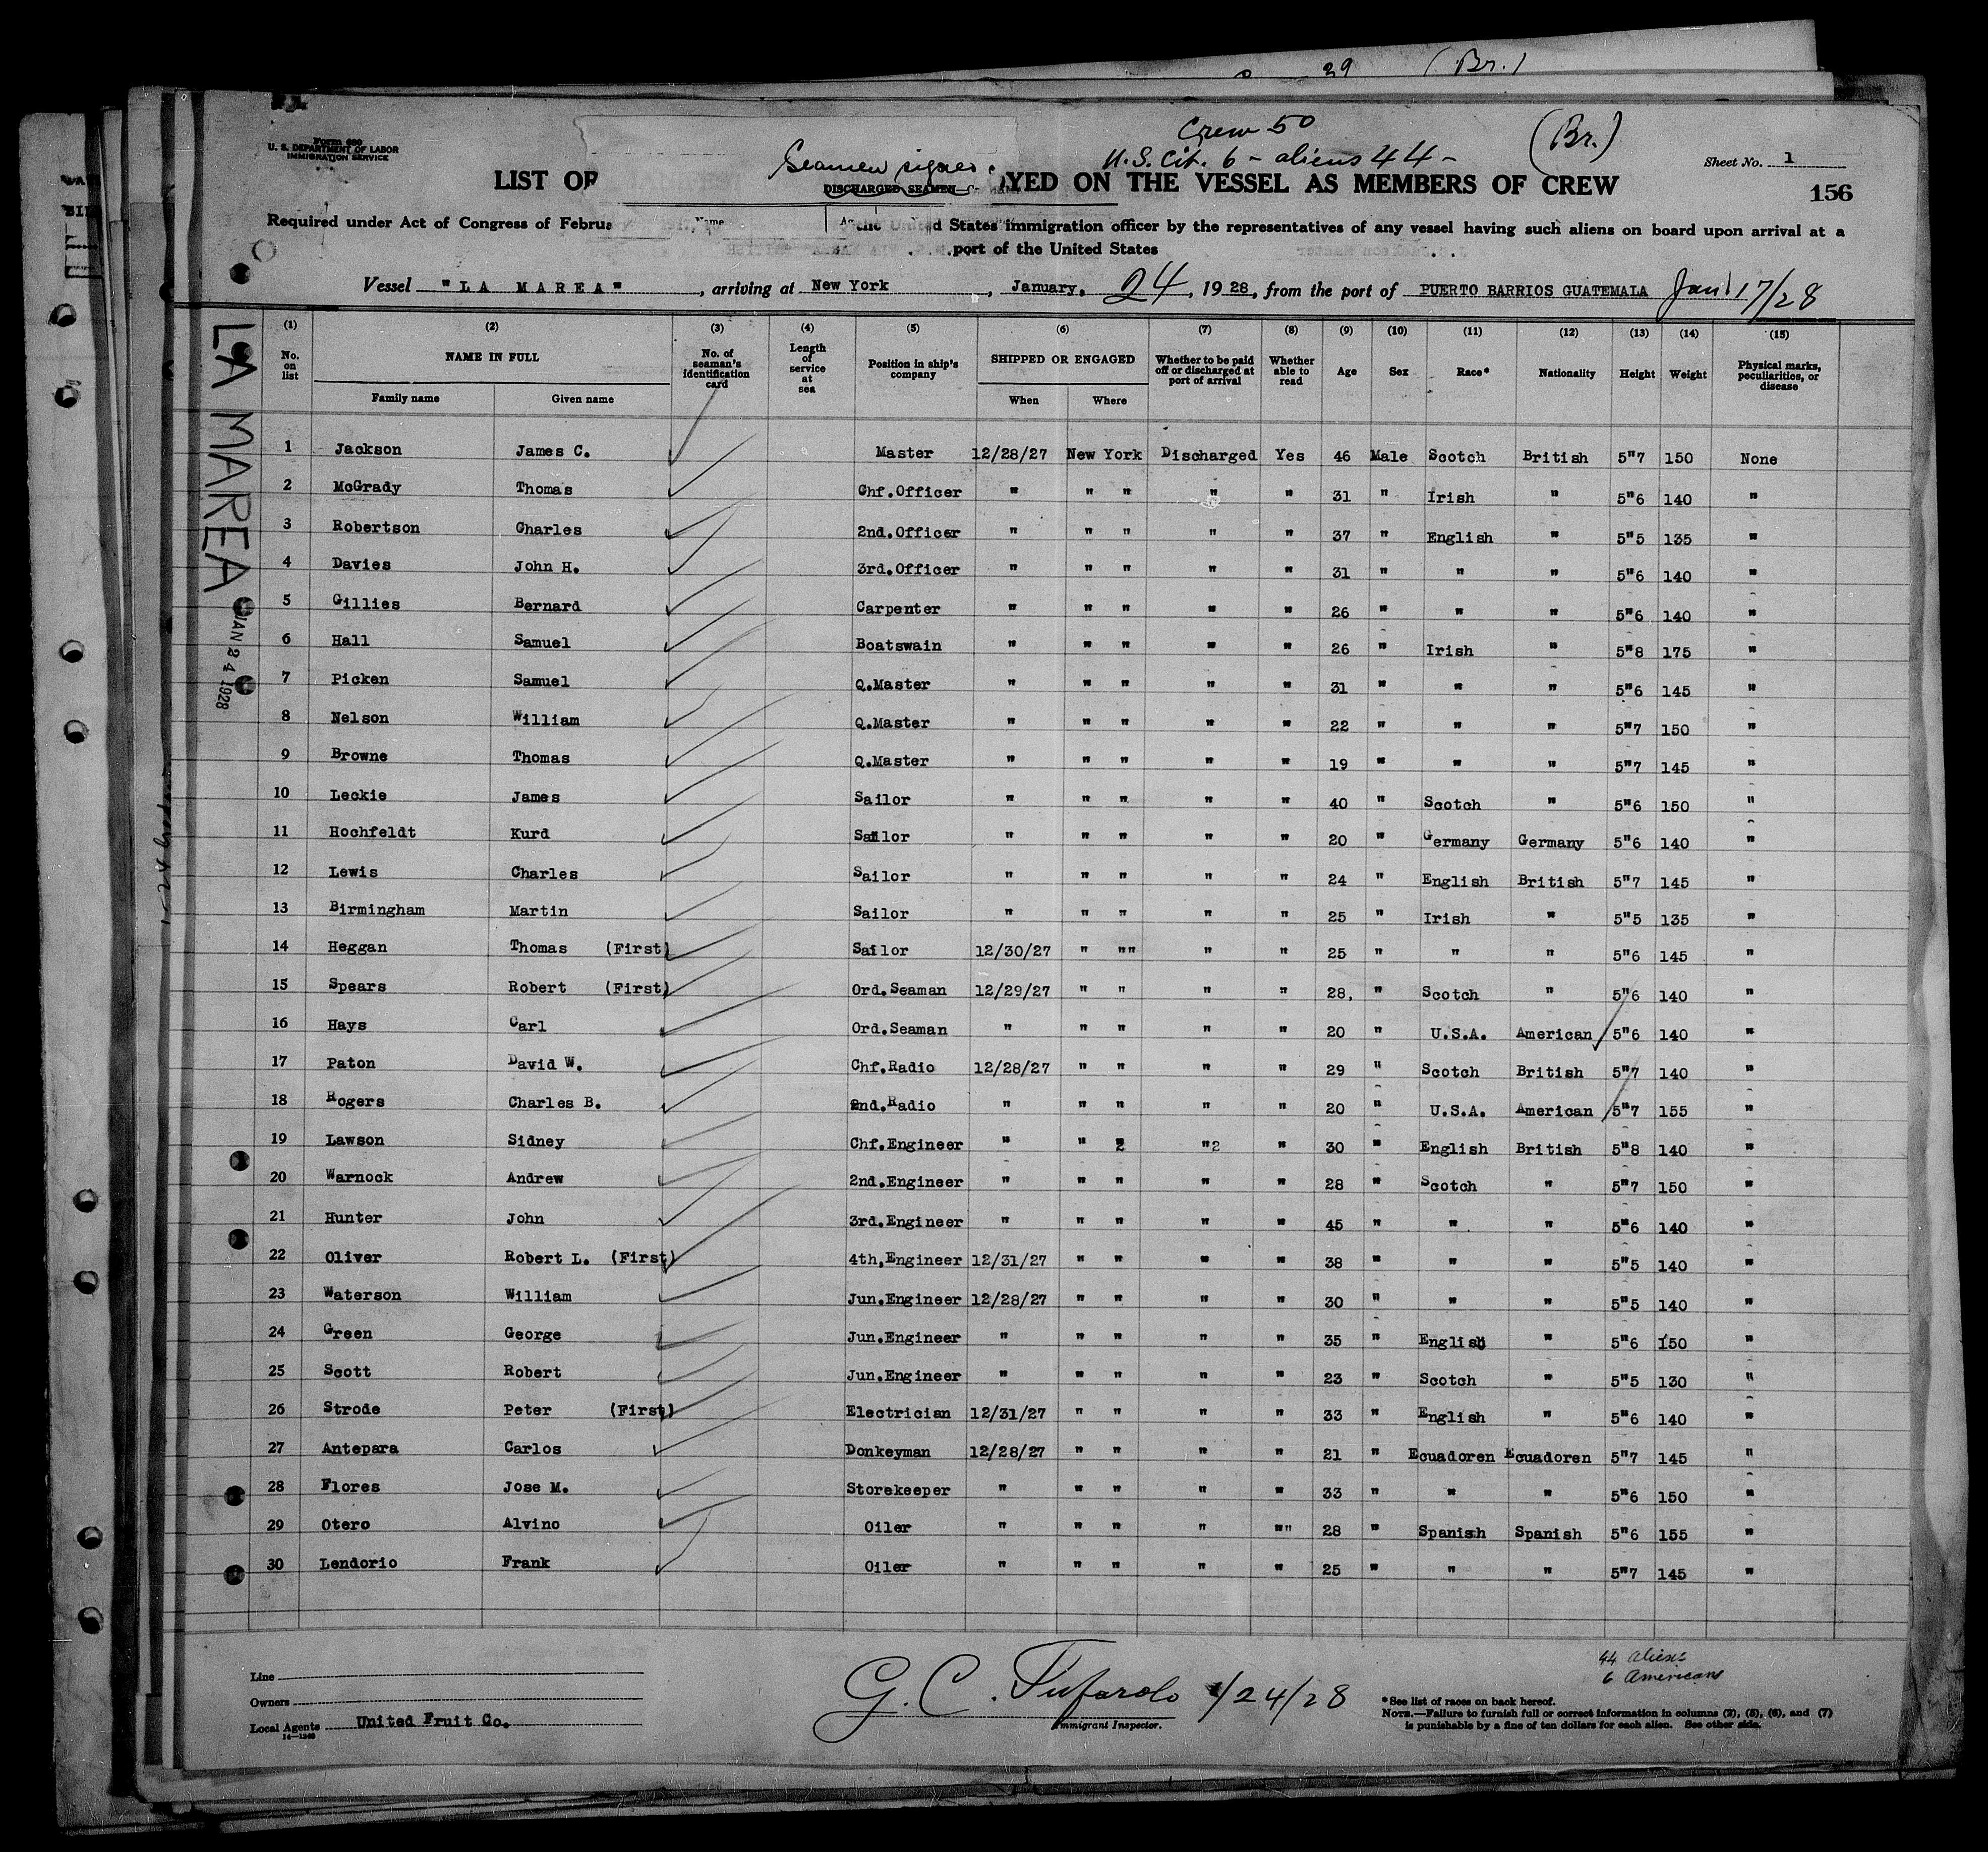 39 (Br.)
Crew 50
(Br.)
Form 680
U. S. DEPARTMENT OF LABOR
IMMIGRATION SERVICE
Seamen signed
U.S. Cit. 6 - aliens 44 -
Sheet No. 1
LIST OF
DISCHARGED SEAMEN
YED ON THE VESSEL AS MEMBERS OF CREW
156
Required under Act of Congress of Februa the United States immigration officer by the representatives of any vessel having such aliens on board upon arrival at a
port of the United States
Vessel "LA MAREA", arriving at New York, January, 24, 1928, from the port of PUERTO BARRIOS GUATEMALA Jan 17/28
LA MAREA
JAN 24 1928
(1) (2) (3) (4) (5) (6) (7) (8) (9) (10) (11) (12) (13) (14) (15)
No. on list NAME IN FULL No. of seaman's identification card Length of service at sea Position in ship's company SHIPPED OR ENGAGED Whether to be paid off or discharged at port of arrival Whether able to read Age Sex Race* Nationality Height Weight Physical marks, peculiarities, or disease
Family name Given name When Where
1 Jackson James C. Master 12/28/27 New York Discharged Yes 46 Male Scotch British 5"7 150 None
2 McGrady Thomas Chf.Officer " " " " " 31 " Irish " 5"6 140 "
3 Robertson Charles 2nd.Officer " " " " " 37 " English " 5"5 135 "
4 Davies John H. 3rd.Officer " " " " " 31 " " " 5"6 140 "
5 Gillies Bernard Carpenter " " " " " 26 " " " 5"6 140 "
6 Hall Samuel Boatswain " " " " " 26 " Irish " 5"8 175 "
7 Picken Samuel Q.Master " " " " " 31 " " " 5"6 145 "
8 Nelson William Q.Master " " " " " 22 " " " 5"7 150 "
9 Browne Thomas Q.Master " " " " " 19 " " " 5"7 145 "
10 Leckie James Sailor " " " " " 40 " Scotch " 5"6 150 "
11 Hochfeldt Kurd Sailor " " " " " 20 " Germany Germany 5"6 140 "
12 Lewis Charles Sailor " " " " " 24 " English British 5"7 145 "
13 Birmingham Martin Sailor " " " " " 25 " Irish " 5"5 135 "
14 Heggan Thomas (First) Sailor 12/30/27 " "" " " 25 " " " 5"6 145 "
15 Spears Robert (First) Ord.Seaman 12/29/27 " " " " 28, " Scotch " 5"6 140 "
16 Hays Carl Ord.Seaman " " " " " 20 " U.S.A. American 5"6 140 "
17 Paton David W. Chf.Radio 12/28/27 " " " " 29 " Scotch British 5"7 140 "
18 Rogers Charles B. 2nd.Radio " " " " " 20 " U.S.A. American 5"7 155 "
19 Lawson Sidney Chf.Engineer " " 2 "2 " 30 " English British 5"8 140 "
20 Warnock Andrew 2nd.Engineer " " " " " 28 " Scotch " 5"7 150 "
21 Hunter John 3rd.Engineer " " " " " 45 " " " 5"6 140 "
22 Oliver Robert L. (First) 4th.Engineer 12/31/27 " " " " 38 " " " 5"5 140 "
23 Waterson William Jun.Engineer 12/28/27 " " " " 30 " " " 5"5 140 "
24 Green George Jun.Engineer " " " " " 35 " English " 5"6 150 "
25 Scott Robert Jun.Engineer " " " " " 23 " Scotch " 5"5 130 "
26 Strode Peter (First) Electrician 12/31/27 " " " " 33 " English " 5"6 140 "
27 Antepara Carlos Donkeyman 12/28/27 " " " " 21 " Ecuadoren Ecuadoren 5"7 145 "
28 Flores Jose M. Storekeeper " " " " " 33 " " " 5"6 150 "
29 Otero Alvino Oiler " " " " "" 28 " Spanish Spanish 5"6 155 "
30 Lendorio Frank Oiler " " " " " 25 " " " 5"7 145 "
44 aliens
6 Americans
Line
Owners
Local Agents United Fruit Co.
G. C. Tufarolo 1/24/28
Immigrant Inspector.
*See list of races on back hereof.
NOTE.—Failure to furnish full or correct information in columns (2), (5), (6), and (7)
is punishable by a fine of ten dollars for each alien. See other side.